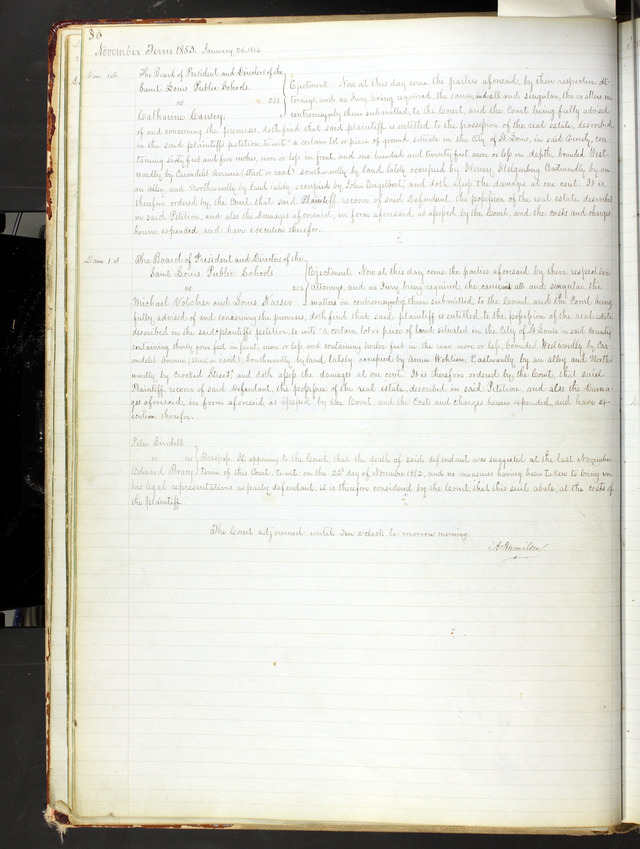 86
November Term 1853. January 26, 1854.
Dam 1ct The Board of President and Directors of the
Saint Louis Public Schools
vs 251
Catharine
Ejectment. Now at this day come the parties aforesaid, by their respective At-
torneys, and no Jury being required, the causes, and all and singular, the matters in
controversy by them submitted, to the Court, and the Court being fully advised
of and concerning the premises, doth find that said plaintiff is entitled to the possession of the real estate, described
in the said plaintiffs petition, to wit: "a certain lot or piece of ground situate in the City of St. Louis, in said County, con-
taining sixty feet and five inches, more or less in front, and one hundred and twenty feet more or less in depth, bounded West-
wardly by Carondelet Avenue (street or road) southwardly by land lately occupied by Henry Eastwardly by an
an alley, and Northwardly by land lately occupied by John Engelbert," and doth assess the damages at one cent. It is
therefore ordered by the Court, that said Plaintiff recover of said Defendant, the possession of the real estate described
in said Petition, and also the Damages aforesaid, in form aforesaid, as assessed by the Court, and the costs and charges
herein expended and have execution therefor.
Dam 1 ct The Board of President and Directors of the
Saint Louis Public Schools
vs 252
Michael and Louis
Ejectment. Now at this day come the parties aforesaid by their respective
attorneys, and no Jury being required, the causes all and singular the
matters in controversy by them submitted, to the Court, and the Court being
fully advised of and concerning the premises, doth find that said plaintiff is entitled to the possession of the real estate
described in the said plaintiffs petition, to wit: "a certain lot or piece of land situated in the City of St Louis in said County
containing thirty four feet in front, more or less, and containing feet in the rear more or less, bounded Westwardly by Car-
ondelet Avenue (street or road). Southwardly by land, lately occupied by Anna Eastwardly by an alley and North-
wardly by Crooked Street," and doth assess the damages at one cent. It is therefore ordered by the Court, that said
Plaintiff, recover of said Defendant, the possession of the real estate, described in said Petition, and also the Dama-
ges aforesaid, in form aforesaid, as assessed by the Court, and the Costs and charges herein expended, and have ex-
ecution therefor.
Peter Lindell
vs
Edward Tracy
Trespass. It appearing to the Court, that the death of said defendant was suggested at the last November
term of this Court, to wit: in the 22d day of November 1852, and no measures having been taken to bring in
his legal representatives as party defendant, it is therefore considered by the Court, that this suit abate, at the costs of
the plaintiff.
The Court adjourned until ten o'clock to-morrow morning.
A Hamilton